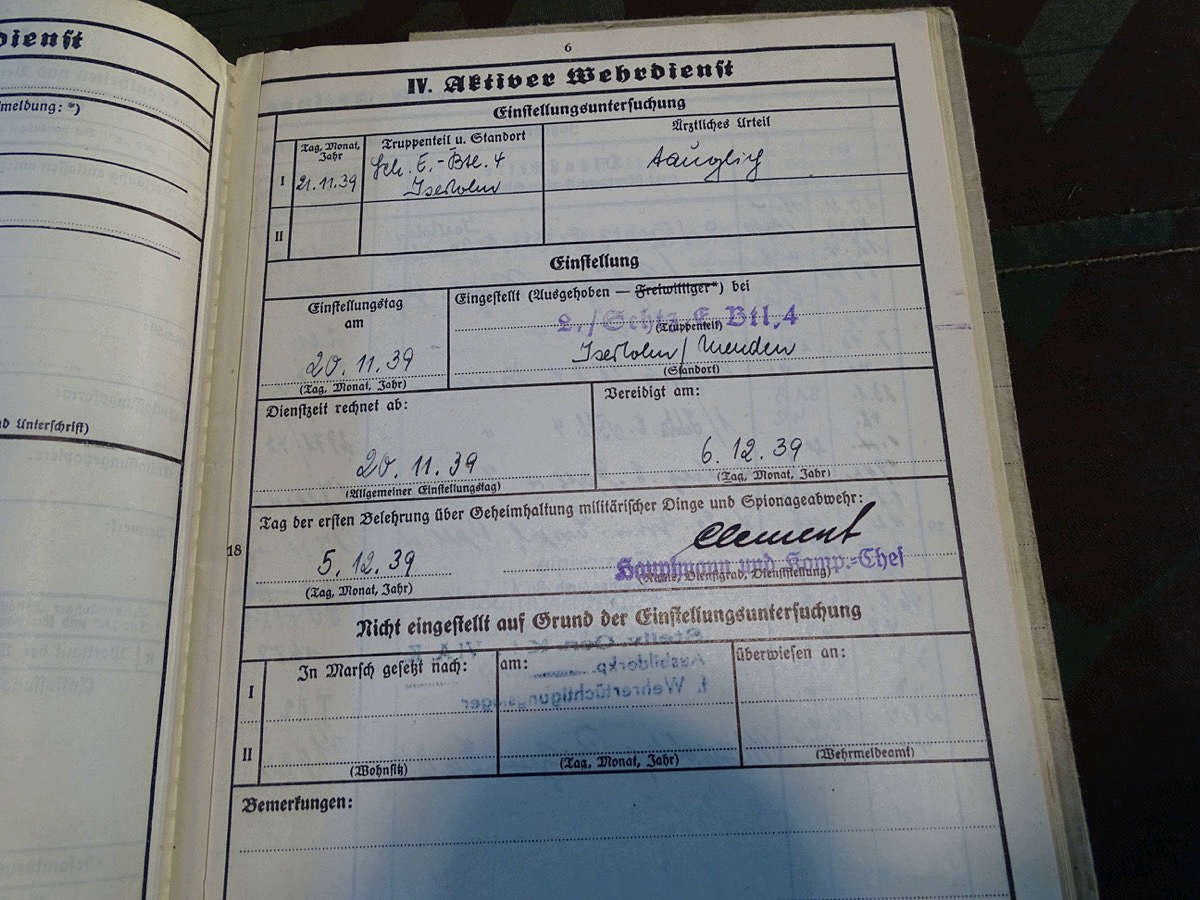 dienst
meldung: *)
nd Unterschrift)
6
IV. Aktiver Wehrdienst
Einstellungsuntersuchung
Tag, Monat, Jahr
Truppenteil u. Standort
Ärztliches Urteil
I
21.11.39
Sch. E.-Btl. 4
Iserlohn
tauglich
II
Einstellung
Einstellungstag
am
20.11.39
(Tag, Monat, Jahr)
Eingestellt (Ausgehoben — Freiwilliger*) bei
2./Schtz. E. Btl. 4
(Truppenteil)
Iserlohn/Menden
(Standort)
Dienstzeit rechnet ab:
20.11.39
(Allgemeiner Einstellungstag)
Vereidigt am:
6.12.39
(Tag, Monat, Jahr)
Tag der ersten Belehrung über Geheimhaltung militärischer Dinge und Spionageabwehr:
18
5.12.39
(Tag, Monat, Jahr)
Clement
Hauptmann und Komp.-Chef
(Name, Dienstgrad, Dienststellung)
Nicht eingestellt auf Grund der Einstellungsuntersuchung
In Marsch gesetzt nach:
am:
überwiesen an:
I
II
(Wohnsitz)
(Tag, Monat, Jahr)
(Wehrmeldeamt)
Bemerkungen: